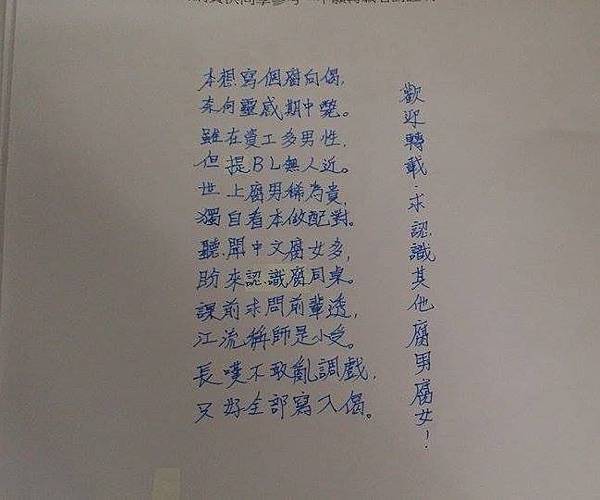 本想寫個腐向偈,
奈何靈感期中斃。
雖在資工多男性,
但提BL無人近。
世上腐男稀為貴,
獨自看本做配對。
聽聞中文腐女多,
盼來認識腐同桌。
課前求問前輩透,
江流稱師是小受。
長嘆不敢亂調戲,
只好全部寫入偈。
歡迎轉載,求認識其他腐男腐女!